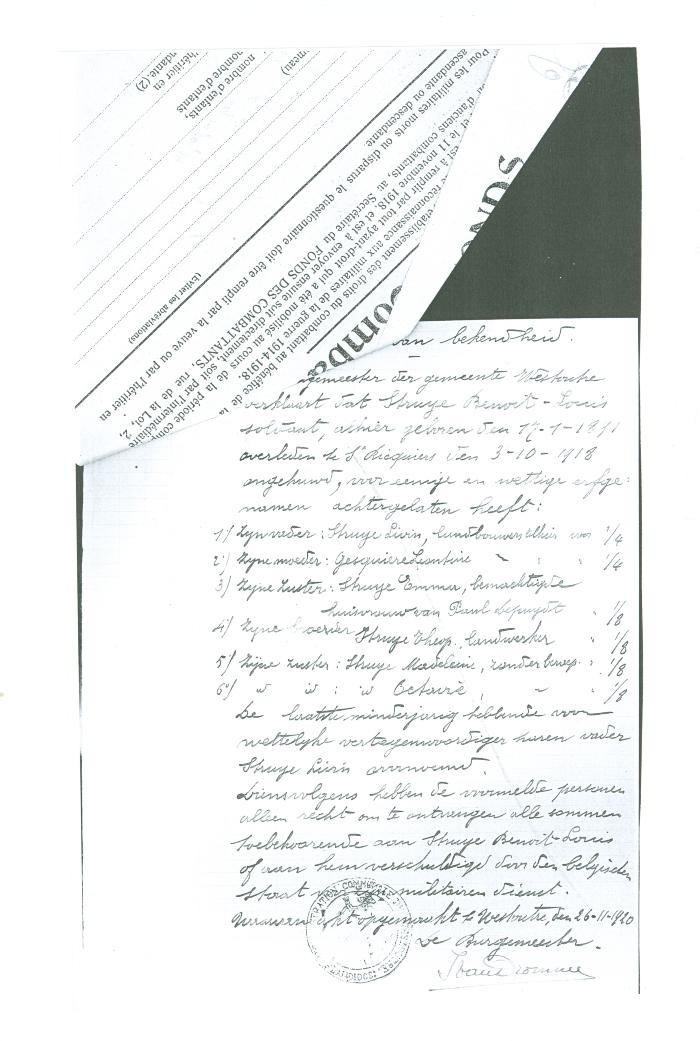 nombre d'enfants,
nombre d'enfants
l'héritier en
(Éviter les abréviations)
Pour les militaires morts ou disparus le questionnaire doit être rempli par la veuve ou par l'héritier en
ascendante ou descendante
établissement des droits du combattant au bénéfice de
reconnaissance aux militaires de la guerre 1914-1918.
est à remplir par tout ayant-droit qui a été mobilisé au cours de la période
et le 11 novembre 1918, et est à envoyer ensuite soit directement, soit par l'intermédiaire
d'anciens combattants, au Secrétaire du FONDS DES COMBATTANTS, rue de la Loi, 2,
van bekendheid.
gemeester der gemeente Westoutre
verklaart dat Struye Benoit-Louis
soldaat, alhier geboren den 17-1-1891
overleden te St Ricquiers den 3-10-1918
ongehuwd, voor eenige en wettige erfge-
namen achtergelaten heeft:
1°/ Zyn vader: Struye Livin, landbouwer alhier voor 1/4
2°/ Zyne moeder: Gesquiere Leontine " " 1/4
3/ Zyne Zuster: Struye Emma, bemachtigde
huisvrouw van Paul Depuydt " 1/8
4/ Zyne broeder Struye Theop. landwerker " 1/8
5°/ Zijne zuster: Struye Madeleine, zonder beroep " 1/8
6°/ id id : id Octavie, " " 1/8
De laatste minderjarig hebbende voor
wettelyke vertegenwoordiger haren vader
Struye Livin voornoemd.
Dienvolgens hebben de voormelde personen
alleen recht om te ontvangen alle sommen
toebehoorende aan Struye Benoit-Louis
of aan hem verschuldigd door den belgischen
staat militairen dienst.
Waarvan akt opgemaakt te Westoutre, den 26-11-1920
De Burgemeester.